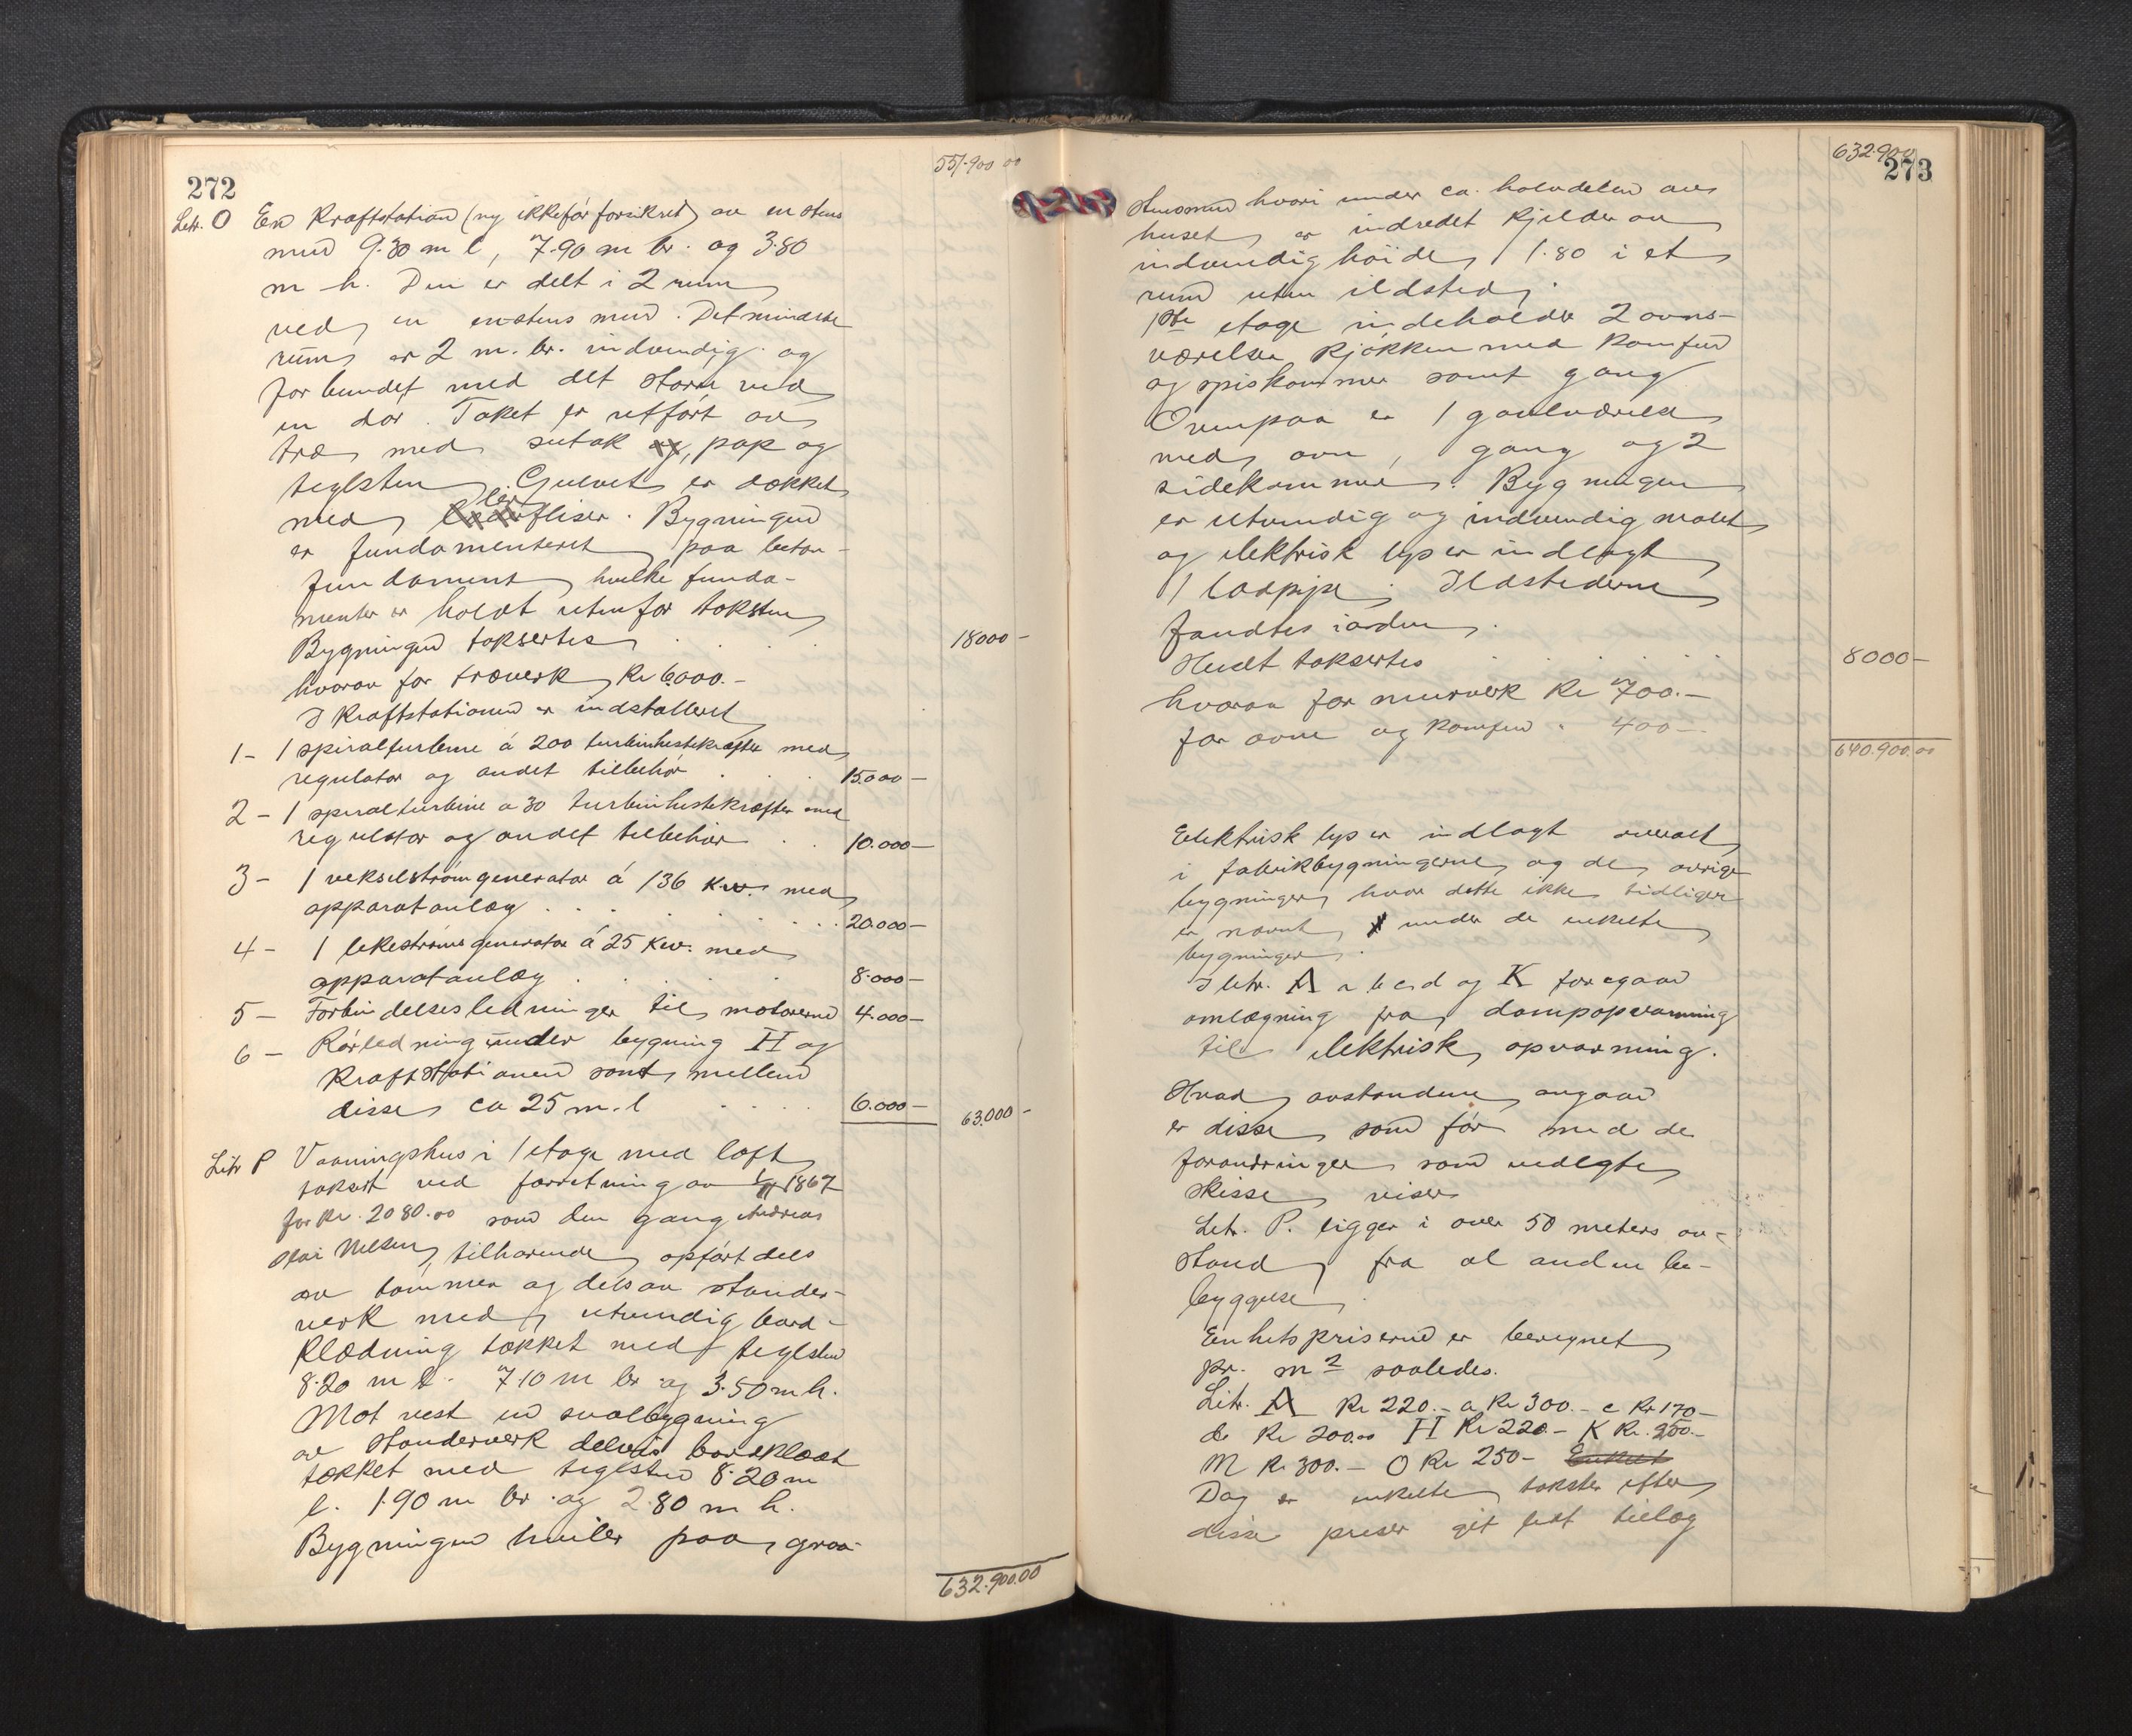 272
551.900 00
Litr. O En Kraftstation (ny ikke før forsikret) av en stens
mur 9.30 m l, 7.90 m br. og 3.80
m h. Den er delt i 2 rum
ved en enstens mur. Det mindste
rum er 2 m. br. indvendig og
forbundet med det større ved
en dør. Taket er utført av
træ med sutak og, pap og
teglsten. Gulvet er dækket
med lerfliser. Bygningen
er fundamenteret paa beton-
fundament, hvilke funda-
menter er holdt utenfor taksten
Bygningen takseres . . . 18000 -
hvorav for træverk Kr 6000.-
I Kraftstationen er indstalleret
1 - 1 spiralturbine á 200 turbinhestekræfter med
regulator og andet tilbehør . . . 15.000 -
2 - 1 spiralturbine a 30 turbinhestekræfter med
regulator og andet tilbehør . . 10.000 -
3 - 1 vekselstrømgenerator á 136 Kw. med
apparatanlæg . . . 20.000 -
4 - 1 likestrømsgenerator á 25 Kw. med
apparatanlæg . . . 8.000 -
5 - Forbindelsesledninger til motorerne 4.000 -
6 - Rørledning under bygning H og
Kraftstationen samt mellem
disse ca 25 m. l . . . 6.000 - 63.000 -
Litr P Vaaningshus i 1 etage med loft
takset ved forretning av 1867
for Kr. 2080.00 som den gang Andreas
Olai Nilsen tilhørende, opført dels
av tømmer og dels av stender-
verk med utvendig bord-
klædning tækket med teglsten
8.20 m l. 7.10 m br og 3.50 m h.
Mot vest en svalbygning
av stenderverk delvis bordklædt
tækket med teglsten 8.20 m
l. 1.90 m br. og 2.80 m h.
Bygningen hviler paa graa-
632.900.00
632.900
273
stensmur hvori under ca. halvdelen av
huset er indredet Kjelder av
indvendig høide 1.80 i et
rum uten ildsted.
1ste etage indeholder 2 ovns-
værelser, kjøkken med komfur
og spiskammer samt gang
Ovenpaa er 1 gavlværelse
med ovn, gang og 2
sidekammer. Bygningen
er utvendig og indvendig malet
og elektrisk lys er indlagt
1 ladpipe. Ildstederne
fandtes i orden.
Huset takseres . . . 8000 -
hvorav for murverk Kr 700.-
for ovne og komfur " 400 -
640.900.00
Elektrisk lys er indlagt overalt
i fabrikbygningerne og de øvrige
bygninger, hvor dette ikke tidligere
er nævnt, under de enkelte
bygninger.
I litr. A a b c d og K foregaar
omlægning fra dampopvarmning
til elektrisk opvarmning.
Hvad avstandene angaar
er disse som før med de
forandringer som vedlagte
skisse viser
Litr. P. ligger i over 50 meters av-
stand fra al anden be-
byggelse.
Enhetspriserne er beregnet
pr. m2 saaledes.
Litr. A Kr 220.- a Kr 300.- c Kr 170 -
Kr 200.00 H Kr 220 - K Kr. 250.-
M Kr 300.- O Kr 250 - Enkelt
Dog er enkelte takster efter
disse priser git litt tillæg